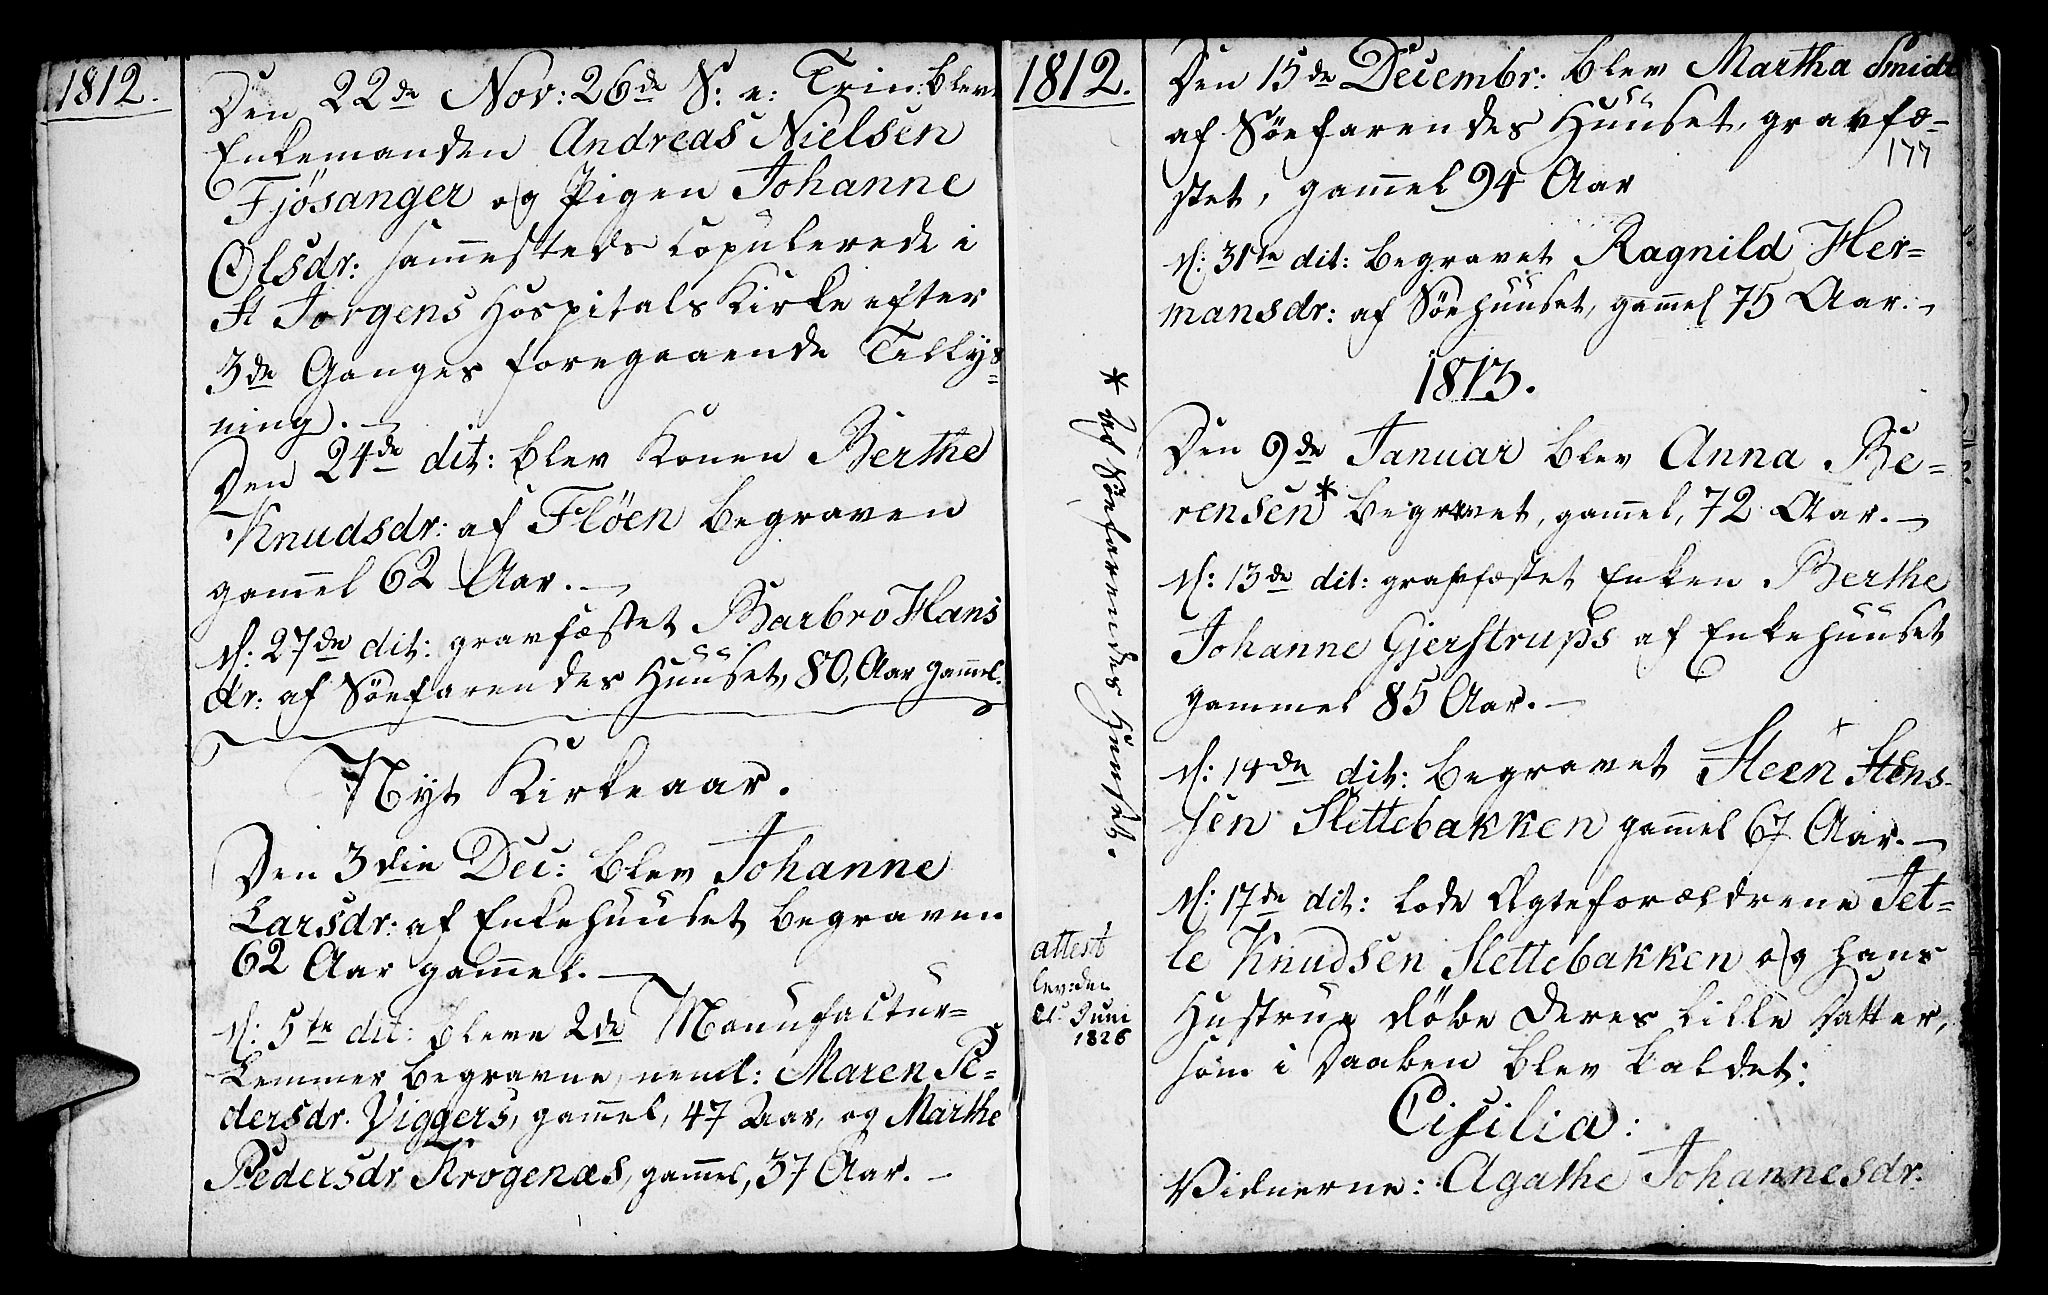 1812.
Den 22de Nov: 26de S: e: Trin: bleve
Enkemanden Andreas Nielsen
Fjösanger og Pigen Johanne
Olsdr: sam̄esteds copulerede i
St Jorgens Hospitals Kirke efter
3de Ganges foregaaende Tillys=
ning. –
Den 24de dit: blev Konen Berthe
Knudsdr: af Flöen begraven
gam̄el 62 Aar. –
d: 27de dit: gravfæstet Barbro Hans
dr: af Söefarendes Huuset, 80, Aar gam̄el.
Nyt Kirkeaar.
Den 3die Dec: blev Johanne
Larsdr: af Enkehuuset begraven
62 Aar gam̄el. –
d: 5te dit: bleve 2de Manufactur=
Lemmer begravne, neml: Maren Pe=
dersdr. Viggers, gam̄el, 47 Aar, og Marthe
Pedersdr Krogenæs, gam̄el, 37 Aar. –
1812.
* af Söefarendes Huuset.
attest
lev: den
21 Juni
1826
Den 15de Decembr: blev Martha Smidt
af Söefarendes Huuset, gravfæ=
177
stet, gam̄el 94 Aar
d: 31te dit: begravet Ragnild Her=
mansdr: af Söehuuset, gam̄el 75 Aar. –
1813.
Den 9de Januar blev Anna Be=
rensen* begravet, gam̄el, 72 Aar. –
d: 13de dit: gravfæstet Enken Berthe
Johanne Gjerstrups af Enkehuuset
gammel 85 Aar. –
d: 14de dit: begravet Steen Stens
sen Slettebakken gam̄el 67 Aar. –
d: 17de dit: lode Ægteforældrene Jet=
le Knudsen Slettebakken og hans
Hustrue döbe deres lille Datter,
som i Daaben blev kaldet:
Cisilia:
Vidnerne: Agathe Johannesdr.